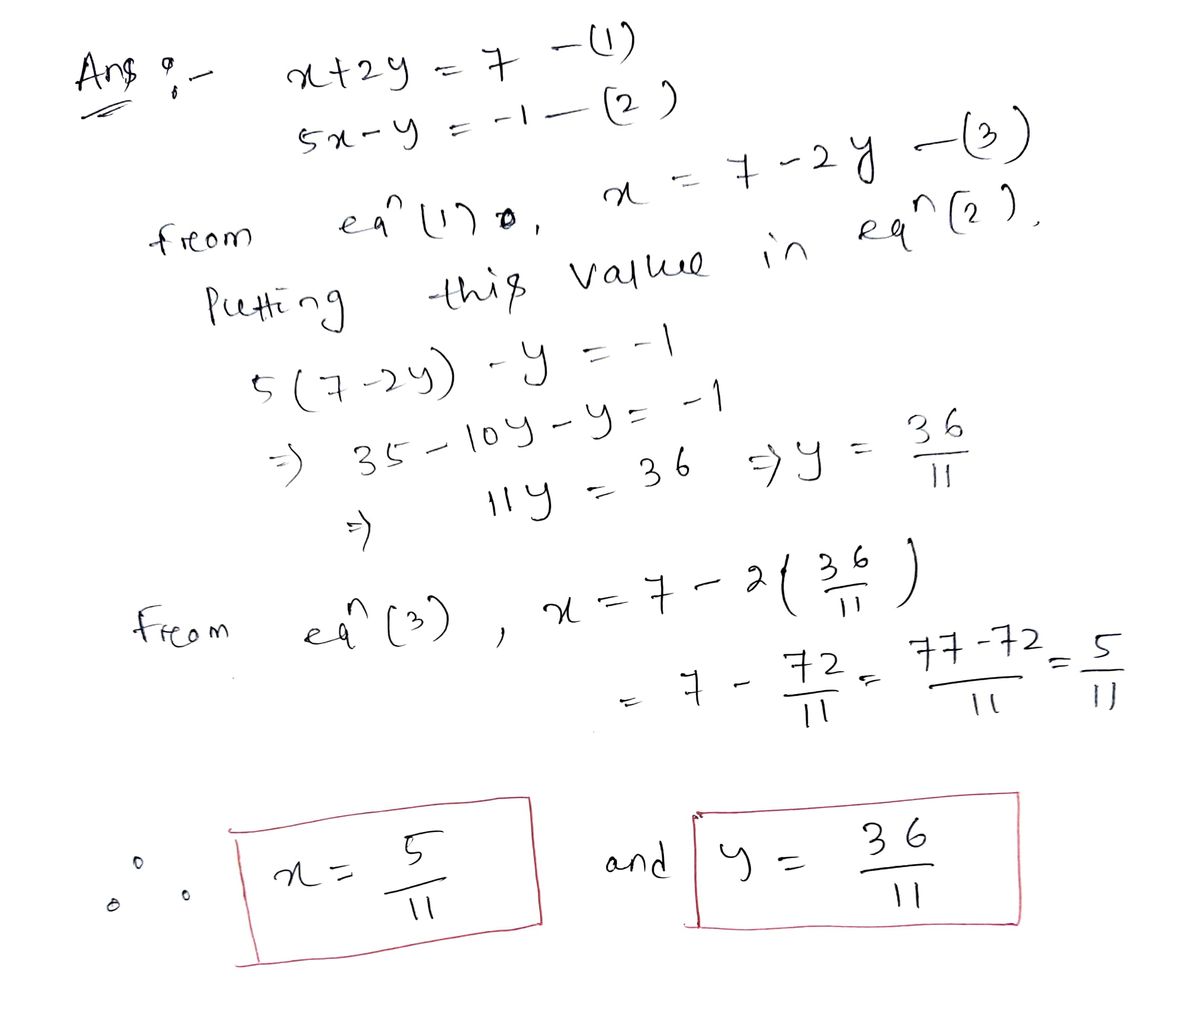 Ans :- x+2y = 7 -(1)
5x-y = -1 - (2)
from eqⁿ (1), x = 7-2y -(3)
Putting this value in eqⁿ (2),
5(7-2y) -y = -1
⇒ 35-10y-y = -1
⇒ 11y = 36 ⇒ y = 36/11
From eqⁿ (3), x = 7 - 2(36/11)
= 7 - 72/11 = 77-72/11 = 5/11
∴ x = 5/11 and y = 36/11